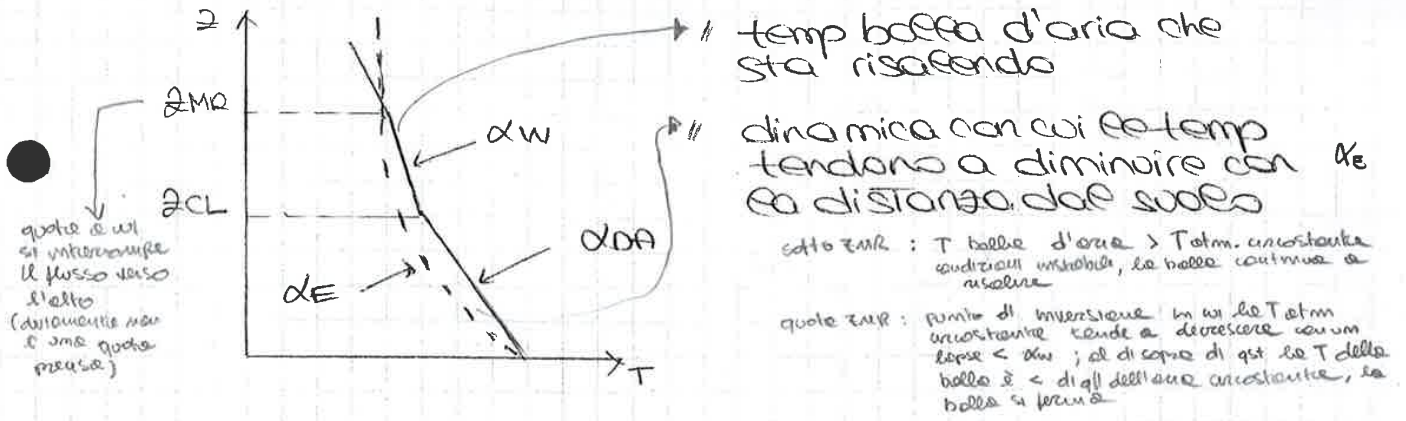 z
zMR
zCL
αW
αDA
αE
T
quota a cui
si interrompe
il flusso verso
l'alto
(ovviamente non
è una quota
precisa)
" temp bolla d'aria che
sta risalendo
" dinamica con cui le temp
tendono a diminuire con αE
la distanza dal suolo
sotto zMR : T bolla d'aria > T atm. circostante
condizioni instabili, la bolla continua a
risalire
quota zMR : punto di inversione in cui la T atm
circostante tende a decrescere con un
lapse < αw ; al di sopra di qst la T della
bolla è < di qll dell'aria circostante, la
bolla si ferma